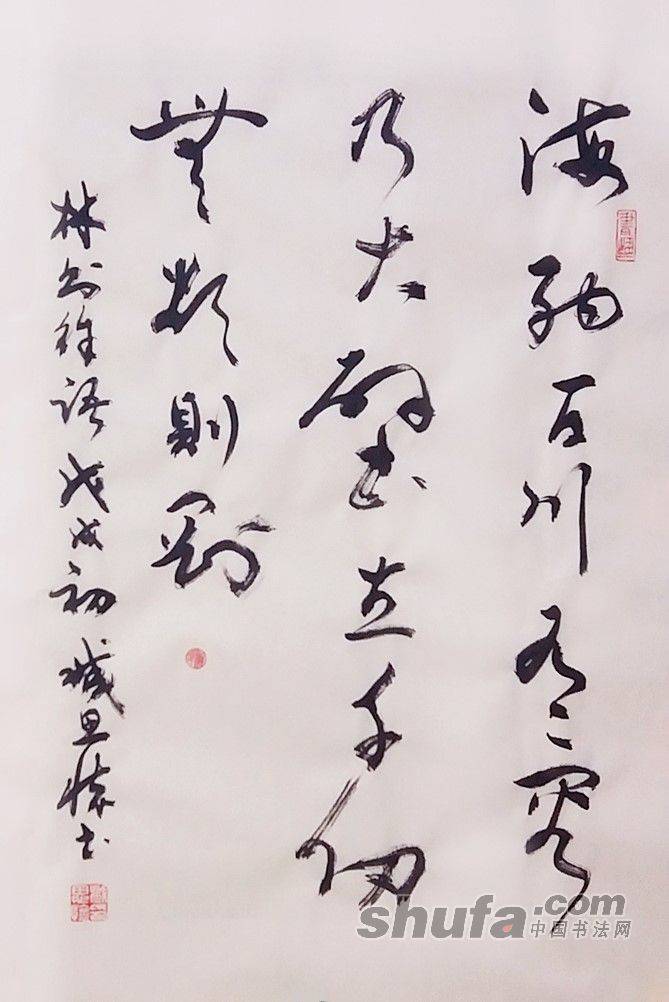 海納百川有容
乃大壁立千仞
無欲則剛
林則徐語戊戌初思懷书
shufa.com
中国书法网